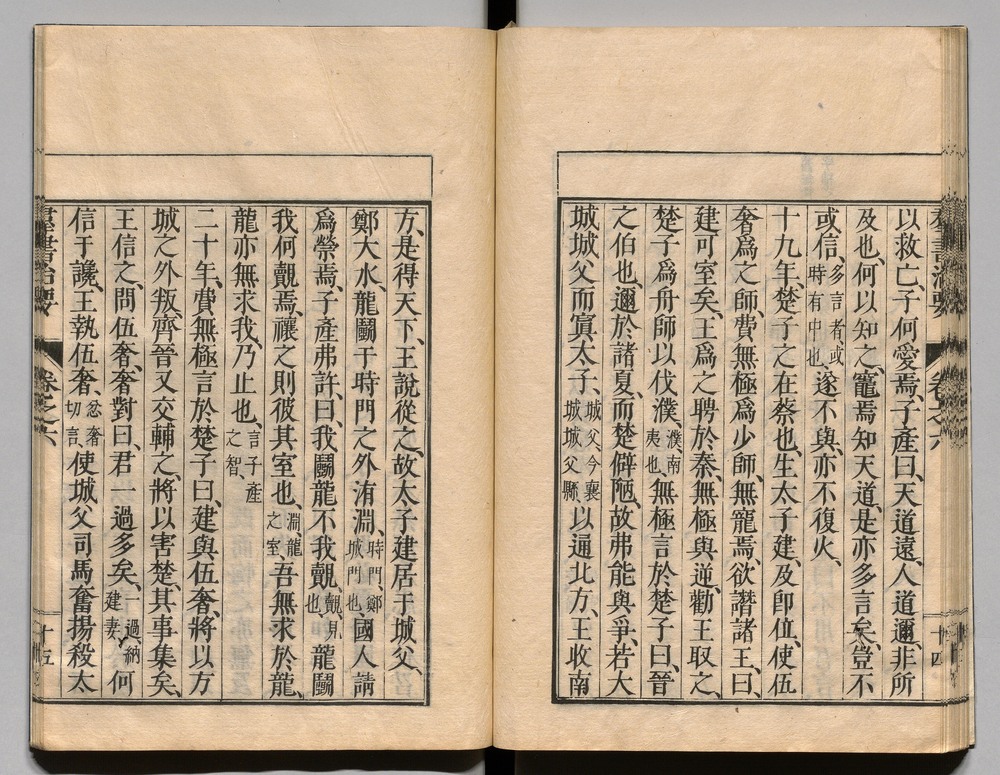 以救亡、子何愛焉、子產曰、天道遠、人道邇、非所
及也、何以知之、竈焉知天道、是亦多言矣、豈不
或信、多言者、或時有中也、遂不與、亦不復火、
十九年、楚子之在蔡也、生太子建、及卽位、使伍
奢爲之師、費無極爲少師、無寵焉、欲譖諸王、曰、
建可室矣、王爲之聘於秦、無極與逆、勸王取之、
楚子爲舟師以伐濮、濮、南夷也、無極言於楚子曰、晉
之伯也、邇於諸夏、而楚僻陋、故弗能與爭、若大
城城父而寘太子、城父今襄城城父縣、以通北方、王收南
羣書治要 卷之六 十四
方、是得天下、王說從之、故太子建居于城父、
鄭大水、龍鬭于時門之外洧淵、時門、鄭城門也、國人請
爲榮焉、子產弗許、曰、我鬭龍不我覿、覿、見也、龍鬭
我何覿焉、禳之則彼其室也、淵、龍之室、吾無求於龍、
龍亦無求我、乃止也、言子產之智、
二十年、費無極言於楚子曰、建與伍奢、將以方
城之外叛、齊晉又交輔之、將以害楚、其事集矣、
王信之、問伍奢、奢對曰、君一過多矣、一過、納建妻、何
信于讒、王執伍奢、忿奢切言、使城父司馬奮揚殺太
羣書治要 卷之六 十五